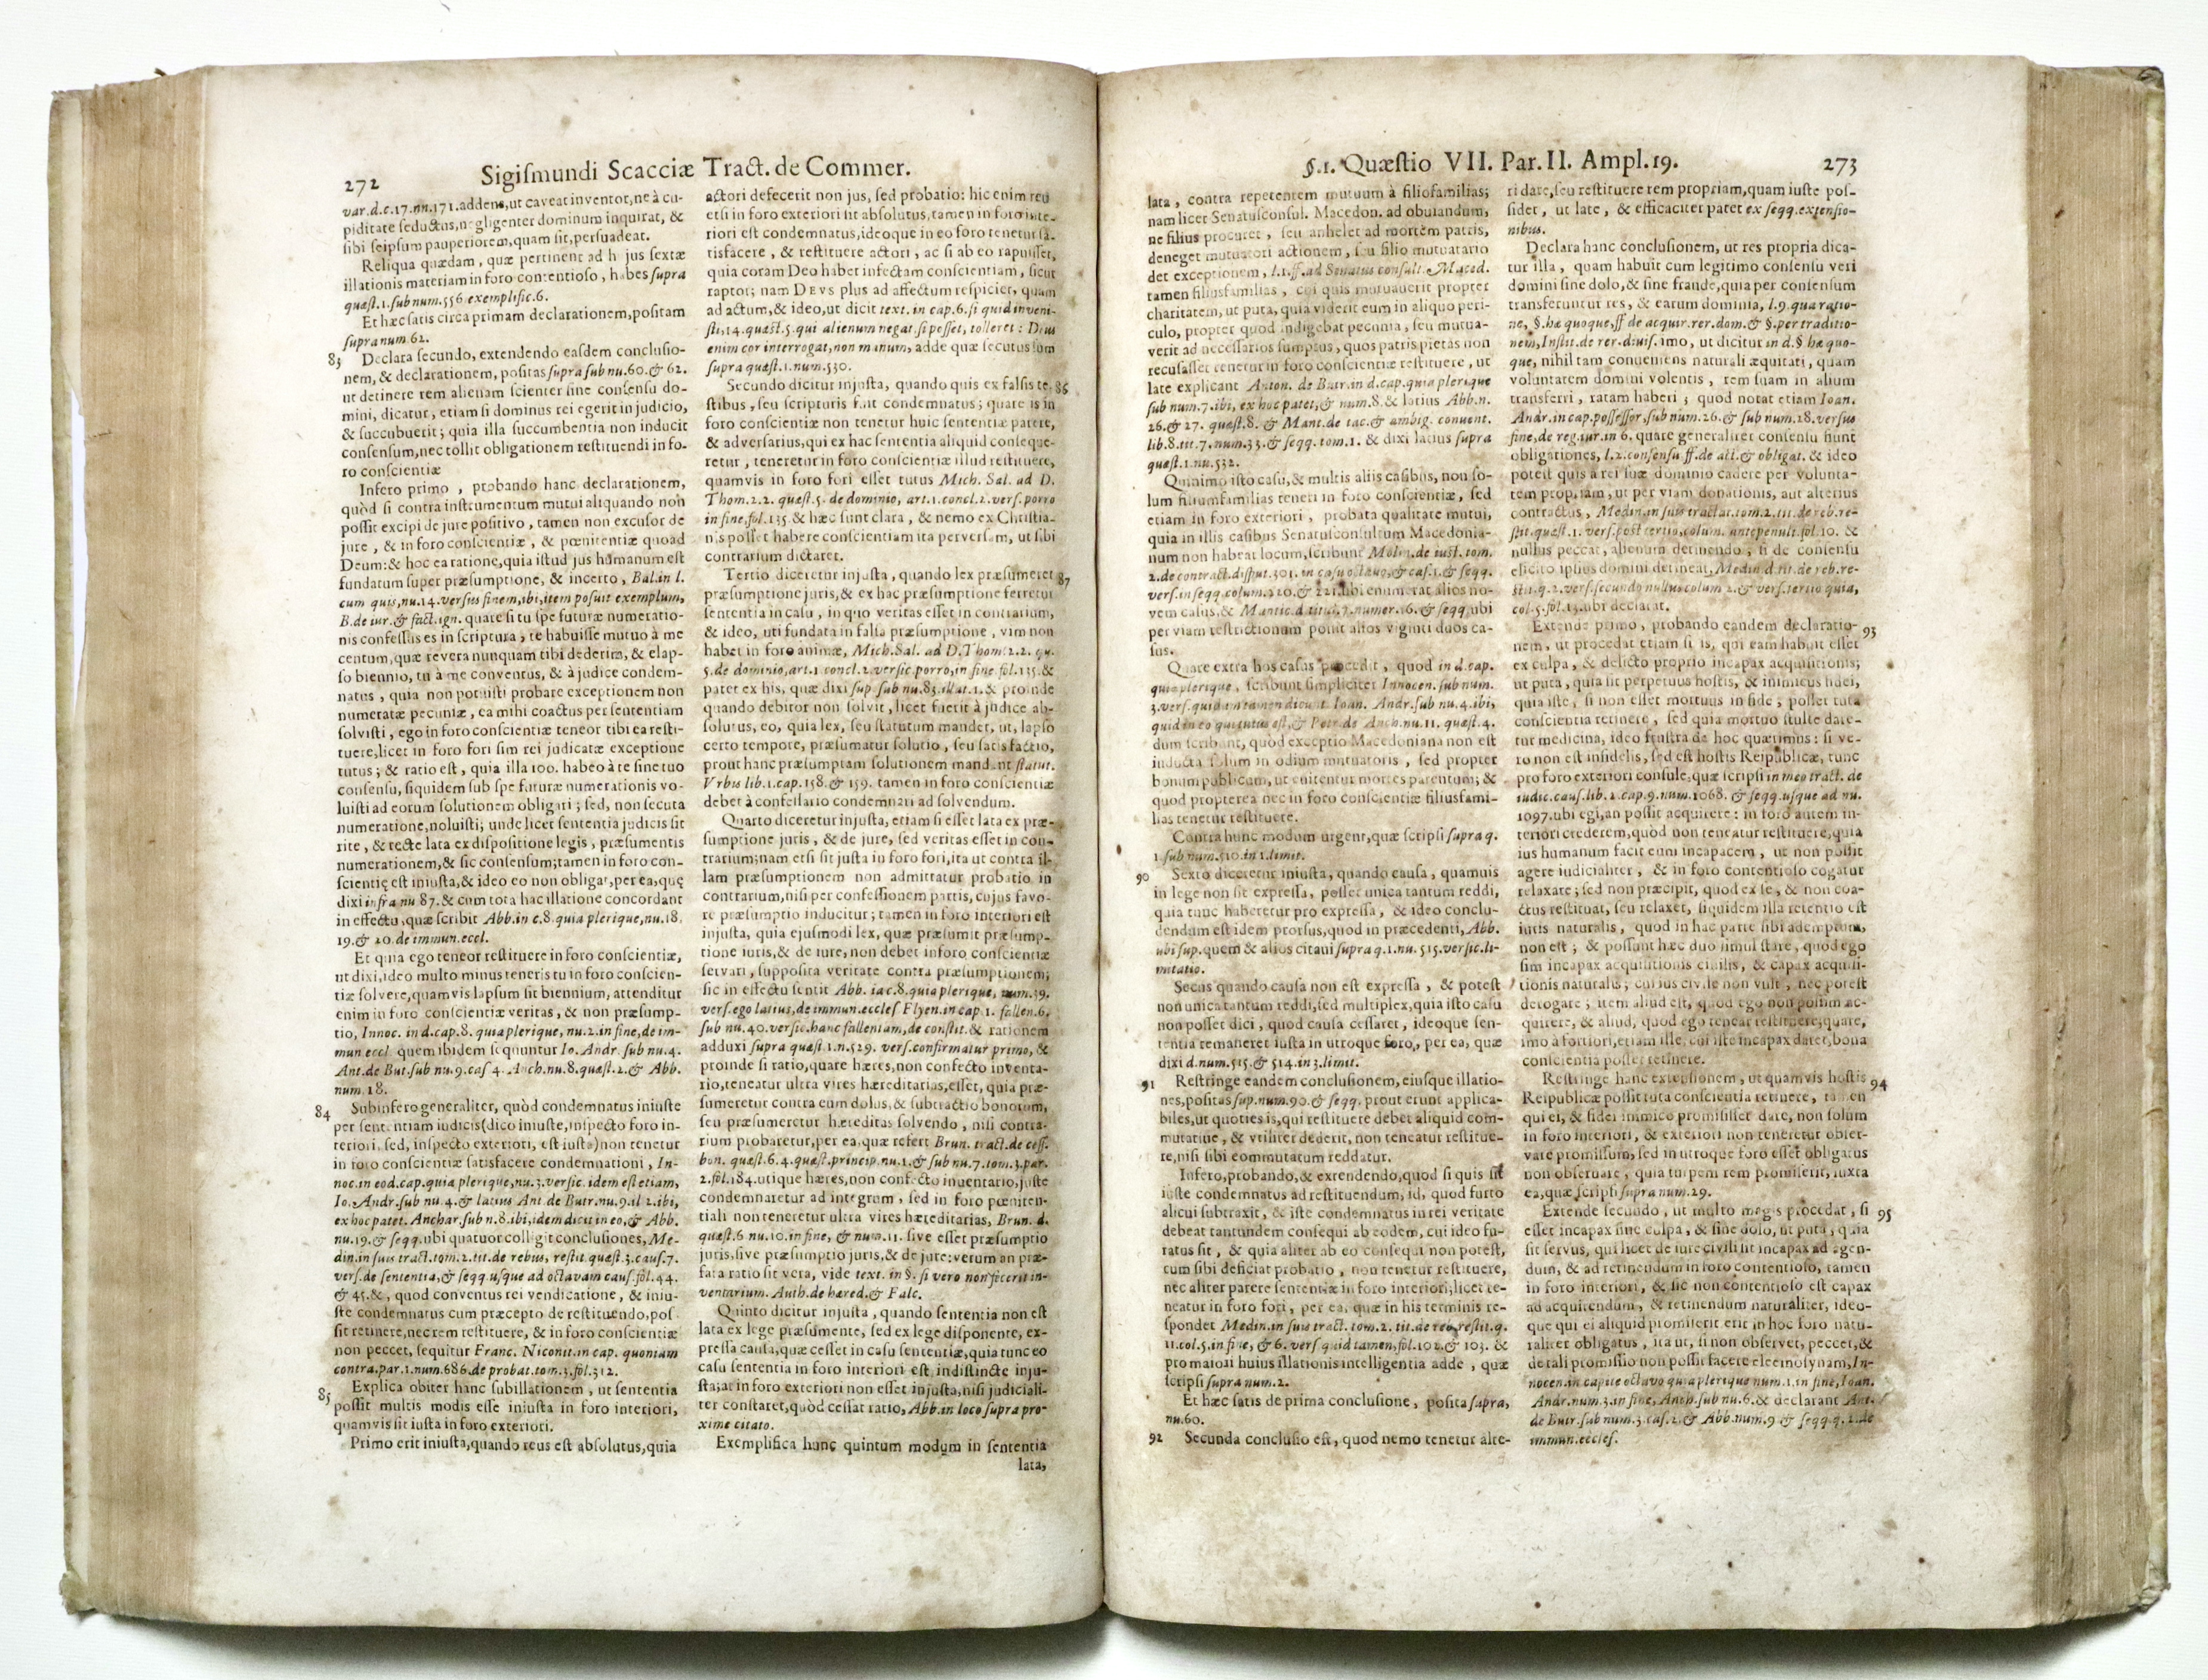 272
Sigiſmundi Scacciæ Tract. de Commer.
var. d. c. 17. nn. 171. addens, ut caveat inventor, ne à cu-
piditate ſeductus, negligenter dominum inquirat, &
ſibi ſeipſum pauperiorem, quam ſit, perſuadeat.
Reliqua quædam, quæ pertinent ad h jus ſextæ
illationis materiam in foro contentioſo, habes ſupra
quæſt. 1. ſub num. 556 exemplific. 6.
Et hæc ſatis circa primam declarationem, poſitam
ſupra num 62.
83 Declara ſecundo, extendendo eaſdem concluſio-
nem, & declarationem, poſitas ſupra ſub nu. 60. & 62.
ut detinere rem alienam ſcienter ſine conſenſu do-
mini, dicatur, etiam ſi dominus rei egerit in judicio,
& ſuccubuerit; quia illa ſuccumbentia non inducit
conſenſum, nec tollit obligationem reſtituendi in fo-
ro conſcientiæ
Infero primo, probando hanc declarationem,
quòd ſi contra inſtrumentum mutui aliquando non
poſſit excipi de jure poſitivo, tamen non excuſor de
jure, & in foro conſcientiæ, & pœnitentiæ quoad
Deum: & hoc ea ratione, quia iſtud jus humanum eſt
fundatum ſuper præſumptione, & incerto, Bal. in l.
cum quis, nu. 14. verſus finem, ibi, item poſuit exemplum,
B. de iur. & fact. ign. quare ſi tu ſpe futuræ numeratio-
nis confeſſus es in ſcriptura, te habuiſſe mutuo à me
centum, quæ revera nunquam tibi dederim, & elap-
ſo biennio, tu à me conventus, & à judice condem-
natus, quia non potuiſti probare exceptionem non
numeratæ pecuniæ, ea mihi coactus per ſententiam
ſolviſti, ego in foro conſcientiæ teneor tibi ea reſti-
tuere, licet in foro fori ſim rei judicatæ exceptione
tutus; & ratio eſt, quia illa 100. habeo à te ſine tuo
conſenſu, ſiquidem ſub ſpe futuræ numerationis vo-
luiſti ad eorum ſolutionem obligari; ſed, non ſecuta
numeratione, noluiſti; unde licet ſententia judicis ſit
rite, & recte lata ex diſpoſitione legis, præſumentis
numerationem, & ſic conſenſum; tamen in foro con-
ſcientię eſt iniuſta, & ideo eo non obligat, per ea, quę
dixi infra nu 87. & cum tota hac illatione concordant
in effectu, quæ ſcribit Abb. in c. 8. quia plerique, nu. 18.
19. & 20 de immun. eccl.
Et quia ego teneor reſtituere in foro conſcientiæ,
ut dixi, ideo multo minus teneris tu in foro conſcien-
tiæ ſolvere, quamvis lapſum ſit biennium, attenditur
enim in foro conſcientiæ veritas, & non præſump-
tio, Innoc. in d. cap. 8. quia plerique, nu. 2. in fine, de im-
mun eccl quem ibidem ſequuntur Io. Andr. ſub nu. 4.
Ant. de But. ſub nu. 9. caſ 4. Anch. nu. 8. quæſt. 2. & Abb.
num 18.
84 Subinfero generaliter, quòd condemnatus iniuſte
per ſententiam iudicis (dico iniuſte, inſpecto foro in-
teriori, ſed, inſpecto exteriori, eſt iuſta) non tenetur
in foro conſcientiæ ſatisfacere condemnationi, In-
noc. in eod. cap. quia plerique, nu. 3. verſic. idem eſt etiam,
Io. Andr. ſub nu. 4. & latius Ant. de Butr. nu. 9. il 2. ibi,
ex hoc patet. Anchar. ſub n. 8. ibi, idem dicit in eo, & Abb.
nu. 19. & ſeqq. ubi quatuor colligit concluſiones, Me-
din. in ſuis tract. tom. 2. tit. de rebus, reſtit. quæſt. 3. cauſ. 7.
verſ. de ſententia, & ſeqq. uſque ad octavam cauſ. fol. 44.
& 45. &, quod conventus rei vendicatione, & iniu-
ſte condemnatus cum præcepto de reſtituendo, poſ-
ſit retinere, nec rem reſtituere, & in foro conſcientiæ
non peccet, ſequitur Franc. Niconit. in cap. quoniam
contra. par. 1. num. 686. de probat. tom. 3. fol. 312.
85 Explica obiter hanc ſubillationem, ut ſententia
poſſit multis modis eſſe iniuſta in foro interiori,
quamvis ſit iuſta in foro exteriori.
Primo erit iniuſta, quando reus eſt abſolutus, quia
actori defecerit non jus, ſed probatio: hic enim reu
etſi in foro exteriori ſit abſolutus, tamen in foro inte-
riori eſt condemnatus, ideoque in eo foro tenetur ſa-
tisfacere, & reſtituere actori, ac ſi ab eo rapuiſſet,
quia coram Deo habet infectam conſcientiam, ſicut
raptor; nam DEVS plus ad affectum reſpiciet, quam
ad actum, & ideo, ut dicit text. in cap. 6. ſi quid inveni-
ſti, 14. quæſt. 5. qui alienum negat. ſi poſſet, tolleret: Deus
enim cor interrogat, non manum, adde quæ ſecutus ſum
ſupra quæſt. 1. num. 530.
Secundo dicitur injuſta, quando quis ex falſis te- 86
ſtibus, ſeu ſcripturis fuit condemnatus; quare is in
foro conſcientiæ non tenetur huic ſententiæ parere,
& adverſarius, qui ex hac ſententia aliquid conſeque-
retur, teneretur in foro conſcientiæ illud reſtituere,
quamvis in foro fori eſſet tutus Mich. Sal. ad D.
Thom. 2. 2. quæſt. 5. de dominio, art. 1. concl. 2. verſ. porro
in fine, fol. 135. & hæc ſunt clara, & nemo ex Chriſtia-
nis poſſet habere conſcientiam ita perverſam, ut ſibi
contrarium dictaret.
Tertio diceretur injuſta, quando lex præſumeret 87
præſumptione juris, & ex hac præſumptione ferretur
ſententia in caſu, in quo veritas eſſet in contrarium,
& ideo, uti fundata in falſa præſumptione, vim non
habet in foro animæ, Mich. Sal. ad D. Thom. 2. 2. qu.
5. de dominio, art. 1 concl. 2. verſic. porro, in fine. fol. 135. &
patet ex his, quæ dixi ſup. ſub nu. 83. illat. 1. & proinde
quando debitor non ſolvit, licet fuerit à judice ab-
ſolutus, eo, quia lex, ſeu ſtatutum mandet, ut, lapſo
certo tempore, præſumatur ſolutio, ſeu ſatisfactio,
prout hanc præſumptam ſolutionem mandant ſtatut.
Vrbis lib. 1. cap. 158. & 159. tamen in foro conſcientiæ
debet à confeſſario condemnari ad ſolvendum.
Quarto diceretur injuſta, etiam ſi eſſet lata ex præ-
ſumptione juris, & de jure, ſed veritas eſſet in con-
trarium; nam etſi ſit juſta in foro fori, ita ut contra il-
lam præſumptionem non admittatur probatio in
contrarium, niſi per confeſſionem partis, cujus favo-
re præſumptio inducitur; tamen in foro interiori eſt
injuſta, quia ejuſmodi lex, quæ præſumit præſump-
tione iuris, & de iure, non debet in foro conſcientiæ
ſervari, ſuppoſita veritate contra præſumptionem;
ſic in effectu ſentit Abb. in c. 8. quia plerique, num. 39.
verſ. ego latius, de immun. eccleſ Flyen. in cap. 1. fallen. 6.
ſub nu. 40. verſic. hanc fallentiam, de conſtit. & rationem
adduxi ſupra quæſt. 1. n. 529. verſ. confirmatur primo, &
proinde ſi ratio, quare hæres, non confecto inventa-
rio, teneatur ultra vires hæreditarias, eſſet, quia præ-
ſumeretur contra eum dolus, & ſubtractio bonorum,
ſeu præſumeretur hæreditas ſolvendo, niſi contra-
rium probaretur, per ea, quæ refert Brun. tract. de ceſſ.
bon. quæſt. 6. 4. quæſt. princip. nu. 1. & ſub nu. 7. tom. 3. par.
2. fol. 184. utique hæres, non confecto inventario, juſte
condemnaretur ad integrum, ſed in foro pœniten-
tiali non teneretur ultra vires hæreditarias, Brun. d.
quæſt. 6 nu. 10. in fine, & num. 11. ſive eſſet præſumptio
juris, ſive præſumptio juris, & de jure: verum an præ-
fata ratio ſit vera, vide text. in §. ſi vero non fecerit in-
ventarium. Auth. de hæred. & Falc.
Quinto dicitur injuſta, quando ſententia non eſt
lata ex lege præſumente, ſed ex lege diſponente, ex-
preſſa cauſa, quæ ceſſet in caſu ſententiæ, quia tunc eo
caſu ſententia in foro interiori eſt indiſtincte inju-
ſta; at in foro exteriori non eſſet injuſta, niſi judiciali-
ter conſtaret, quòd ceſſat ratio, Abb. in loco ſupra pro-
xime citato.
Exemplifica hanc quintum modum in ſententia
lata,
§. 1. Quæſtio VII. Par. II. Ampl. 19.
273
lata, contra repetentem mutuum à filiofamilias;
nam licet Senatusconſul. Macedon. ad obuiandum,
ne filius procuret, ſeu anhelet ad mortem patris,
deneget mutuatori actionem, ſeu filio mutuatario
det exceptionem, l. 1. ff. ad Senatus conſult. Maced.
tamen filiusfamilias, cui quis mutuauerit propter
charitatem, ut puta, quia viderit eum in aliquo peri-
culo, propter quod indigebat pecunia, ſeu mutua-
verit ad neceſſarios ſumptus, quos patris pietas non
recuſaſſet tenetur in foro conſcientiæ reſtituere, ut
late explicant Anton. de Butr. in d. cap. quia plerique
ſub num. 7. ibi, ex hoc patet, & num. 8. & latius Abb. n.
26. & 27. quæſt. 8. & Mant. de tac. & ambig. convent.
lib. 8. tit. 7. num. 33. & ſeqq. tom. 1. & dixi latius ſupra
quæſt. 1. nu. 532.
Quinimo iſto caſu, & multis aliis caſibus, non ſo-
lum filiumfamilias teneri in foro conſcientiæ, ſed
etiam in foro exteriori, probata qualitate mutui,
quia in illis caſibus Senatuſconſultum Macedonia-
num non habeat locum, ſcribunt Molin. de iuſt. tom.
2. de contract. diſput. 301. in caſu octavo, & caſ. 1. & ſeqq.
verſ. in ſeqq. colum. 220. & 221. ubi enumerat alios no-
vem caſus, & Mantic. d titul. 7. numer. 16. & ſeqq ubi
per viam reſtrictionum ponit alios viginti duos ca-
ſus.
Quare extra hos caſus procedit, quod in d. cap.
quia plerique, ſcribunt ſimpliciter Innocen. ſub num.
3. verſ. quid tamen dicunt Ioan. Andr. ſub nu. 4. ibi,
quid in eo qui tutus eſt, & Petr. de Anch. nu. 11. quæſt. 4.
dum ſcribunt, quòd exceptio Macedoniana non eſt
inducta ſolum in odium mutuatoris, ſed propter
bonum publicum, ut euitentur mortes parentum; &
quod propterea nec in foro conſcientiæ filiusfami-
lias tenetur reſtituere.
Contra hunc modum urgent, quæ ſcripſi ſupra q.
1 ſub num. 510. in 1. limit.
90 Sexto diceretur iniuſta, quando cauſa, quamuis
in lege non ſit expreſſa, poſſet unica tantum reddi,
quia tunc haberetur pro expreſſa, & ideo conclu-
dendum eſt idem prorſus, quod in præcedenti, Abb.
ubi ſup. quem & alios citavi ſupra q. 1. nu. 515. verſic. li-
mitatio.
Secus quando cauſa non eſt expreſſa, & poteſt
non unica tantum reddi, ſed multiplex, quia iſto caſu
non poſſet dici, quod cauſa ceſſaret, ideoque ſen-
tentia remaneret iuſta in utroque foro, per ea, quæ
dixi d. num. 515. & 514. in 3. limit.
91 Reſtringe eandem concluſionem, eiuſque illatio-
nes, poſitas ſup. num. 90. & ſeqq. prout erunt applica-
biles, ut quoties is, qui reſtituere debet aliquid com-
mutatiue, & vtiliter dederit, non teneatur reſtitue-
re, niſi ſibi eommutatum reddatur.
Infero, probando, & extendendo, quod ſi quis ſit
iuſte condemnatus ad reſtituendum, id, quod furto
alicui ſubtraxit, & iſte condemnatus in rei veritate
debeat tantundem conſequi ab eodem, cui ideo fu-
ratus ſit, & quia aliter ab eo conſequi non poteſt,
cum ſibi deficiat probatio, non tenetur reſtituere,
nec aliter parere ſententiæ in foro interiori; licet te-
neatur in foro fori, per ea, quæ in his terminis re-
ſpondet Medin. in ſuis tract. tom. 2. tit. de reb. reſtit. q.
11. col. 5. in fine, & 6. verſ quid tamen, fol. 102. & 103. &
pro maiori huius illationis intelligentia adde, quæ
ſcripſi ſupra num. 2.
Et hæc ſatis de prima concluſione, poſita ſupra,
nu. 60.
92 Secunda concluſio eſt, quod nemo tenetur alte-
ri dare, ſeu reſtituere rem propriam, quam iuſte poſ-
ſidet, ut late, & efficaciter patet ex ſeqq. extenſio-
nibus.
Declara hanc concluſionem, ut res propria dica-
tur illa, quam habuit cum legitimo conſenſu veri
domini ſine dolo, & ſine fraude, quia per conſenſum
transferuntur res, & earum dominia, l. 9. qua ratio-
ne, §. hæ quoque, ff de acquir. rer. dom. & §. per traditio-
nem, Inſtit. de rer. diuiſ. imo, ut dicitur in d. § hæ quo-
que, nihil tam conueniens naturali æquitati, quam
voluntatem domini volentis, rem ſuam in alium
transferri, ratam haberi; quod notat etiam Ioan.
Andr. in cap. poſſeſſor, ſub num. 26. & ſub num. 28. verſus
fine, de reg. iur. in 6. quare generaliter conſenſu fiunt
obligationes, l. 2. conſenſu ff. de act. & obligat. & ideo
poteſt quis à rei ſuæ dominio cadere per volunta-
tem propriam, ut per viam donationis, aut alterius
contractus, Medin. in ſuis tractat. tom. 2. tit. de reb. re-
ſtit. quæſt. 1. verſ. poſt tertio, colum. antepenult. fol. 10. &
nullus peccat, alienum detinendo; ſi de conſenſu
elicito ipſius domini detineat, Medin d. tit. de reb. re-
ſtit. q. 2. verſ. ſecundo nullus colum 2. & verſ. tertio quia,
col. 5. fol. 13. ubi declarat.
Extende primo, probando eandem declaratio- 93
nem, ut procedat etiam ſi is, qui eam habuit eſſet
ex culpa, & delicto proprio incapax acquiſitionis;
ut puta, quia ſit perpetuus hoſtis, & inimicus fidei,
quia iſte, ſi non eſſet mortuus in fide; poſſet tuta
conſcientia retinere, ſed quia mortuo ſtulte dare-
tur medicina, ideo fruſtra de hoc quærimus: ſi ve-
ro non eſt infidelis, ſed eſt hoſtis Reipublicæ, tunc
pro foro exteriori conſule, quæ ſcripſi in meo tract. de
iudic. cauſ. lib. 1. cap. 9. num. 1068. & ſeqq. uſque ad nu.
1097. ubi egi, an poſſit acquirere: in foro autem in-
teriori crederem, quòd non teneatur reſtituere, quia
ius humanum facit eum incapacem, ut non poſſit
agere iudicialiter, & in foro contentioſo cogatur
relaxare; ſed non præcipit, quod ex ſe, & non coa-
ctus reſtituat, ſeu relaxet, ſiquidem illa retentio eſt
iuris naturalis, quod in hac parte ſibi ademptum,
non eſt; & poſſunt hæc duo ſimul ſtare, quod ego
ſim incapax acquiſitionis ciuilis, & capax acquiſi-
tionis naturalis; cui ius ciuile non vult, nec poteſt
derogare; item aliud eſt, quod ego non poſſim ac-
quirere, & aliud, quod ego tenear reſtituere; quare,
imo à fortiori, etiam ille, cui iſte incapax daret, bona
conſcientia poſſet retinere.
Reſtringe hanc extenſionem, ut quamvis hoſtis 94
Reipublicæ poſſit tuta conſcientia retinere, tamen
qui ei, & fidei inimico promiſiſſet dare, non ſolum
in foro interiori, & exteriori non teneretur obſer-
vare promiſſum, ſed in utroque foro eſſet obligatus
non obſeruare, quia turpem rem promiſerit, iuxta
ea, quæ ſcripſi ſupra num. 29.
Extende ſecundo, ut multo magis procedat, ſi 95
eſſet incapax ſine culpa, & ſine dolo, ut puta, quia
ſit ſervus, qui licet de iure civili ſit incapax ad agen-
dum, & ad retinendum in foro contentioſo, tamen
in foro interiori, & ſic non contentioſo eſt capax
ad acquirendum, & retinendum naturaliter, ideo-
que qui ei aliquid promiſerit erit in hoc foro natu-
raliter obligatus, ita ut, ſi non obſervet, peccet, &
de tali promiſſio non poſſit facere eleemoſynam, In-
nocen. in capite octavo quia plerique num. 1. in fine, Ioan.
Andr. num. 3. in fine, Anch. ſub nu. 6. & declarant Ant.
de Butr. ſub num. 3. caſ. 2. & Abb. num. 9 & ſeqq. q. 2. de
immun. eccleſ.